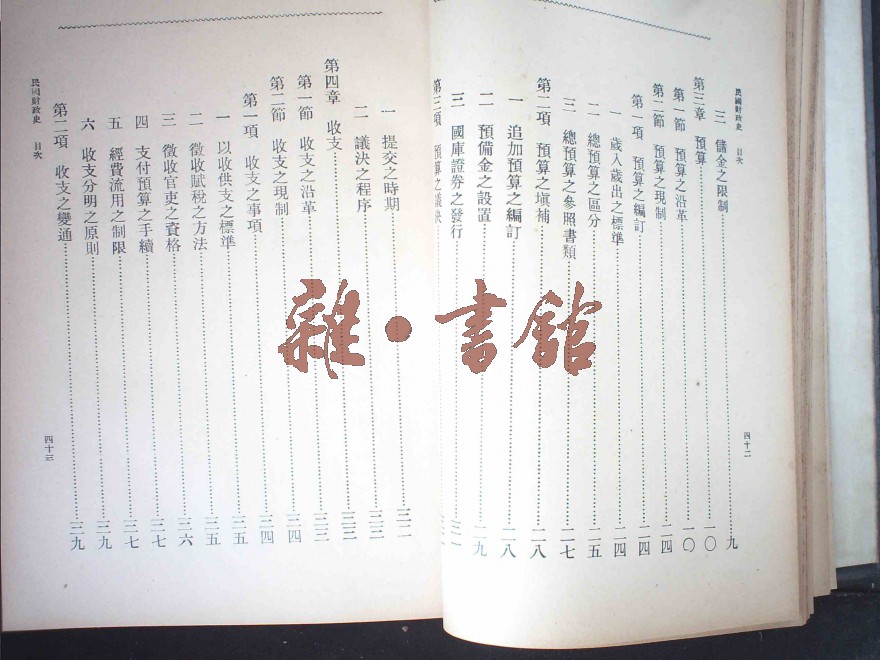 民國財政史 目次 四十二
三 儲金之限制 九
第三章 預算 一〇
第一節 預算之沿革 一〇
第二節 預算之現制 二四
第一項 預算之編訂 二四
一 歲入歲出之標準 二四
二 總預算之區分 二五
三 總預算之參照書類 二七
第二項 預算之塡補 二八
一 追加預算之編訂 二八
二 預備金之設置 二九
三 國庫證券之發行
第三項 預算之議決
一 提交之時期
二 議決之程序
第四章 收支 三三
第一節 收支之沿革 三三
第二節 收支之現制 三四
第一項 收支之事項 三四
一 以收供支之標準 三五
二 徵收賦稅之方法 三五
三 徵收官吏之資格 三六
四 支付預算之手續 三七
五 經費流用之制限 三七
六 收支分明之原則 三九
第二項 收支之變通 三九
民國財政史 目次 四十三
雜·書館